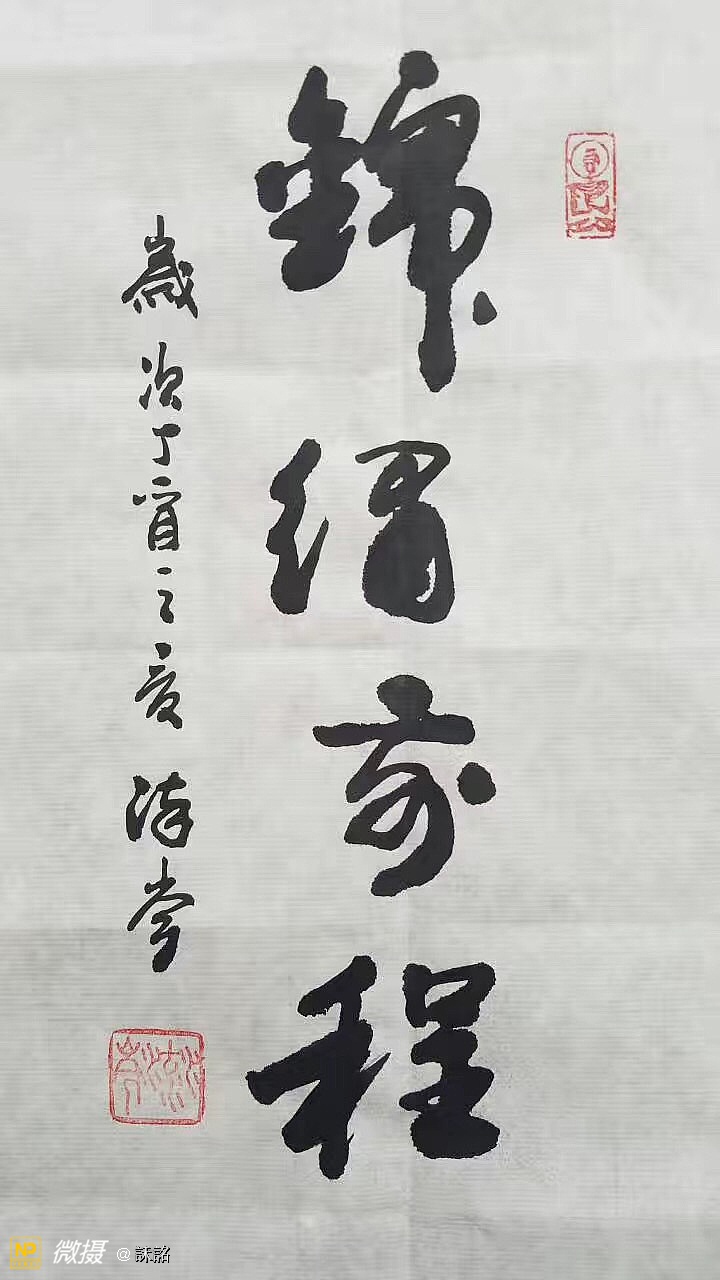 錦繡前程
歲次丁酉之夏
NP 微摄 @